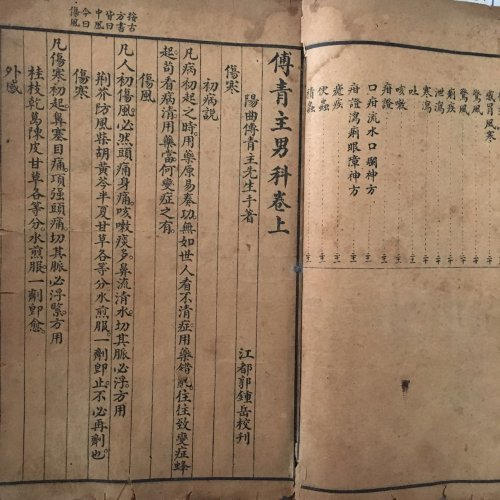 感冒風寒
驚風
驚風
痢疾
泄瀉
寒瀉
吐
咳嗽
疳證
口疳流水口爛神方
疳證瀉痢眼障神方
瘧疾
便蟲
積蟲
傅青主男科卷上
陽曲傅青主先生手著 江都郭鍾岳校刊
傷寒
初病說
凡病初起之時。用藥原易奏功。無如世人看不清症。用藥錯亂。往往致變症蜂
起。苟看病清。用藥當。何變症之有。
傷風
凡人初傷風。必然頭痛身痛。咳嗽痰多。鼻流清水。切其脈必浮。方用
荊芥防風柴胡黃芩半夏甘草各等分水煎服。一劑即止。不必再劑也。
傷寒
凡傷寒初起。鼻塞目痛。項强頭痛。切其脈必浮緊。方用
桂枝乾葛陳皮甘草各等分水煎服。一劑即愈。
外感
按古
方書
皆曰
中風
今曰
傷風